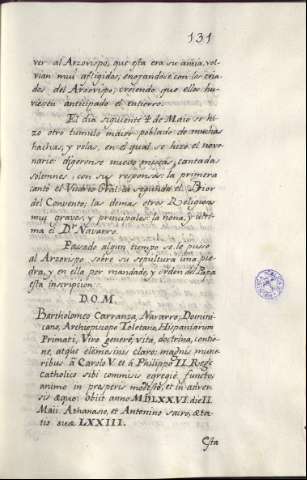 131
ver al Arzovispo, que esta era su ansia, vol-
vian mui afligidas, enojandose con los cria-
dos del Arzovispo, creiendo que ellos hu-
viesen anticipado el entierro.
El dia siguiente 4 de Maio se hi-
zo otro tumulo maior poblado de muchas
hachas, y velas, en el qual se hizo el nove-
nario: digeronse nueve misas, cantadas
solemnes, con sus responsos: la primera
cantó el Vicario Gral. la segunda el Prior
del Convento, las demas otros Religiosos
mui graves, y principales: la nona, y ulti-
ma el Dr. Navarro.
Pasado algun tiempo se le puso
al Arzovispo sobre su sepultura una pie-
dra, y en ella por mandado, y orden del Papa
esta inscripcion:
D. O. M.
Bartholomeo Carranza, Navarro, Domini-
cano, Archiepiscopo Toletano, Hispaniarum
Primati, Viro genere, vita, doctrina, contio-
ne, atque elemosinis claro; magnis mune-
ribus à Carolo V. et à Philippo II. Rege
Catholico sibi commisis egregiè functo;
animo in prosperis modesto, et in adver-
sis æquo: obiit anno MDLXXVI. die II
Maii. Athanasio, et Antonino sacro, æta-
tis suæ LXXIII.
Esta